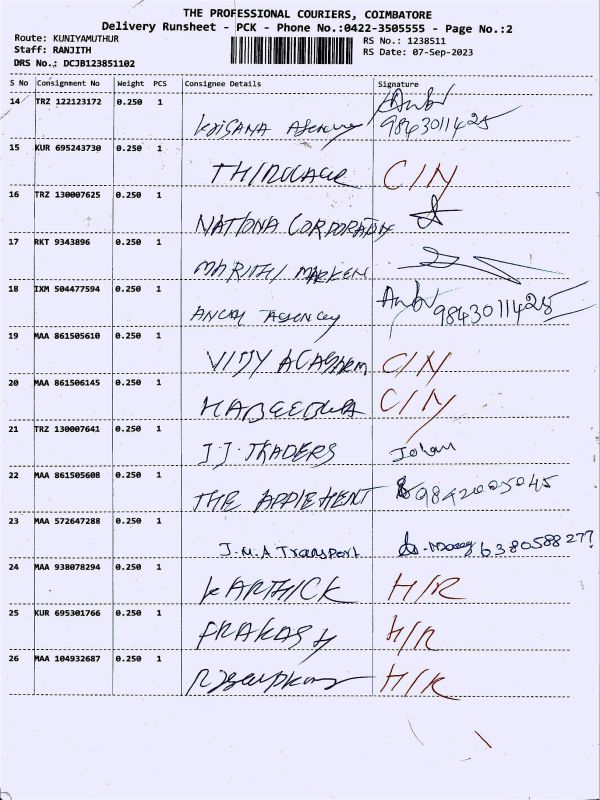 THE PROFESSIONAL COURIERS, COIMBATORE
Delivery Runsheet - PCK - Phone No.:0422-3505555 - Page No.:2
Route: KUNIYAMUTHUR RS No.: 1238511
Staff: RANJITH RS Date: 07-Sep-2023
DRS No.: DCJB123851102
S No Consignment No Weight PCS Consignee Details Signature
14 TRZ 122123172 0.250 1
Agency 9843011425
15 KUR 695243730 0.250 1
C/N
16 TRZ 130007625 0.250 1
NATIONA CORPORATION
17 RKT 9343896 0.250 1
MARUTHI
18 IXM 504477594 0.250 1
Agency Anbu 9843011425
19 MAA 861505610 0.250 1
VIJY C/N
20 MAA 861506145 0.250 1
C/N
21 TRZ 130007641 0.250 1
J.J. TRADERS
22 MAA 861505608 0.250 1
THE 9842005045
23 MAA 572647288 0.250 1
J.M.A Transport 6380588277
24 MAA 938078294 0.250 1
KARTHICK H/R
25 KUR 695301766 0.250 1
PRAKASH H/R
26 MAA 104932687 0.250 1
H/R